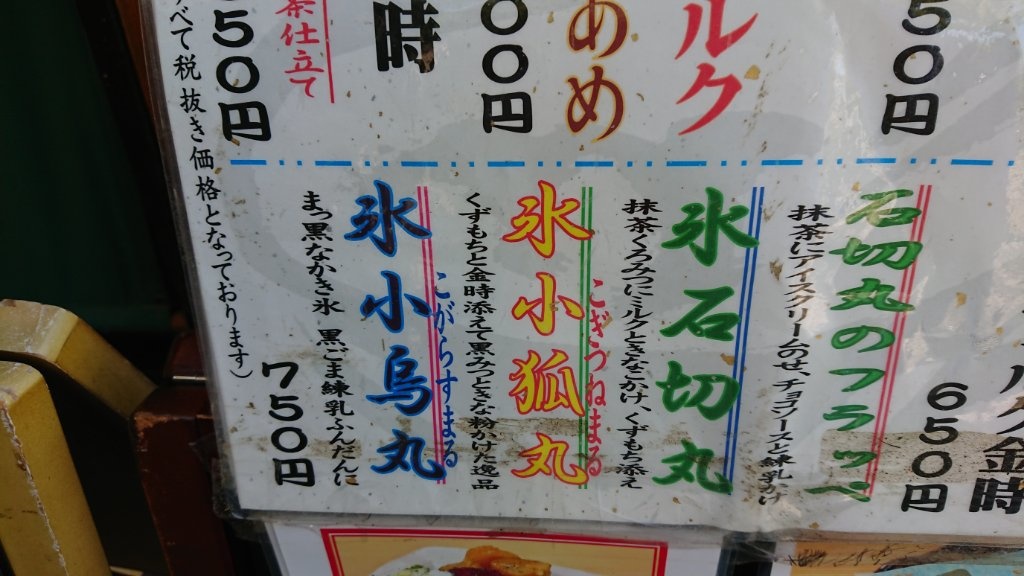 ５０円
ルク
あめ
００円
時
茶仕立て
５０円
すべて税抜き価格となっております）
ルク金時
６５０円
石切丸のフラッペ
抹茶にアイスクリームのせ、チョコソースと練乳がけ
氷石切丸
抹茶くろみつにミルクときなこかけ、くずもち添え
こぎつねまる
氷小狐丸
くずもちと金時添えて黒みつときな粉かけた逸品
こがらすまる
氷小烏丸
まっ黒なかき氷 黒ごま練乳ふんだんに
７５０円